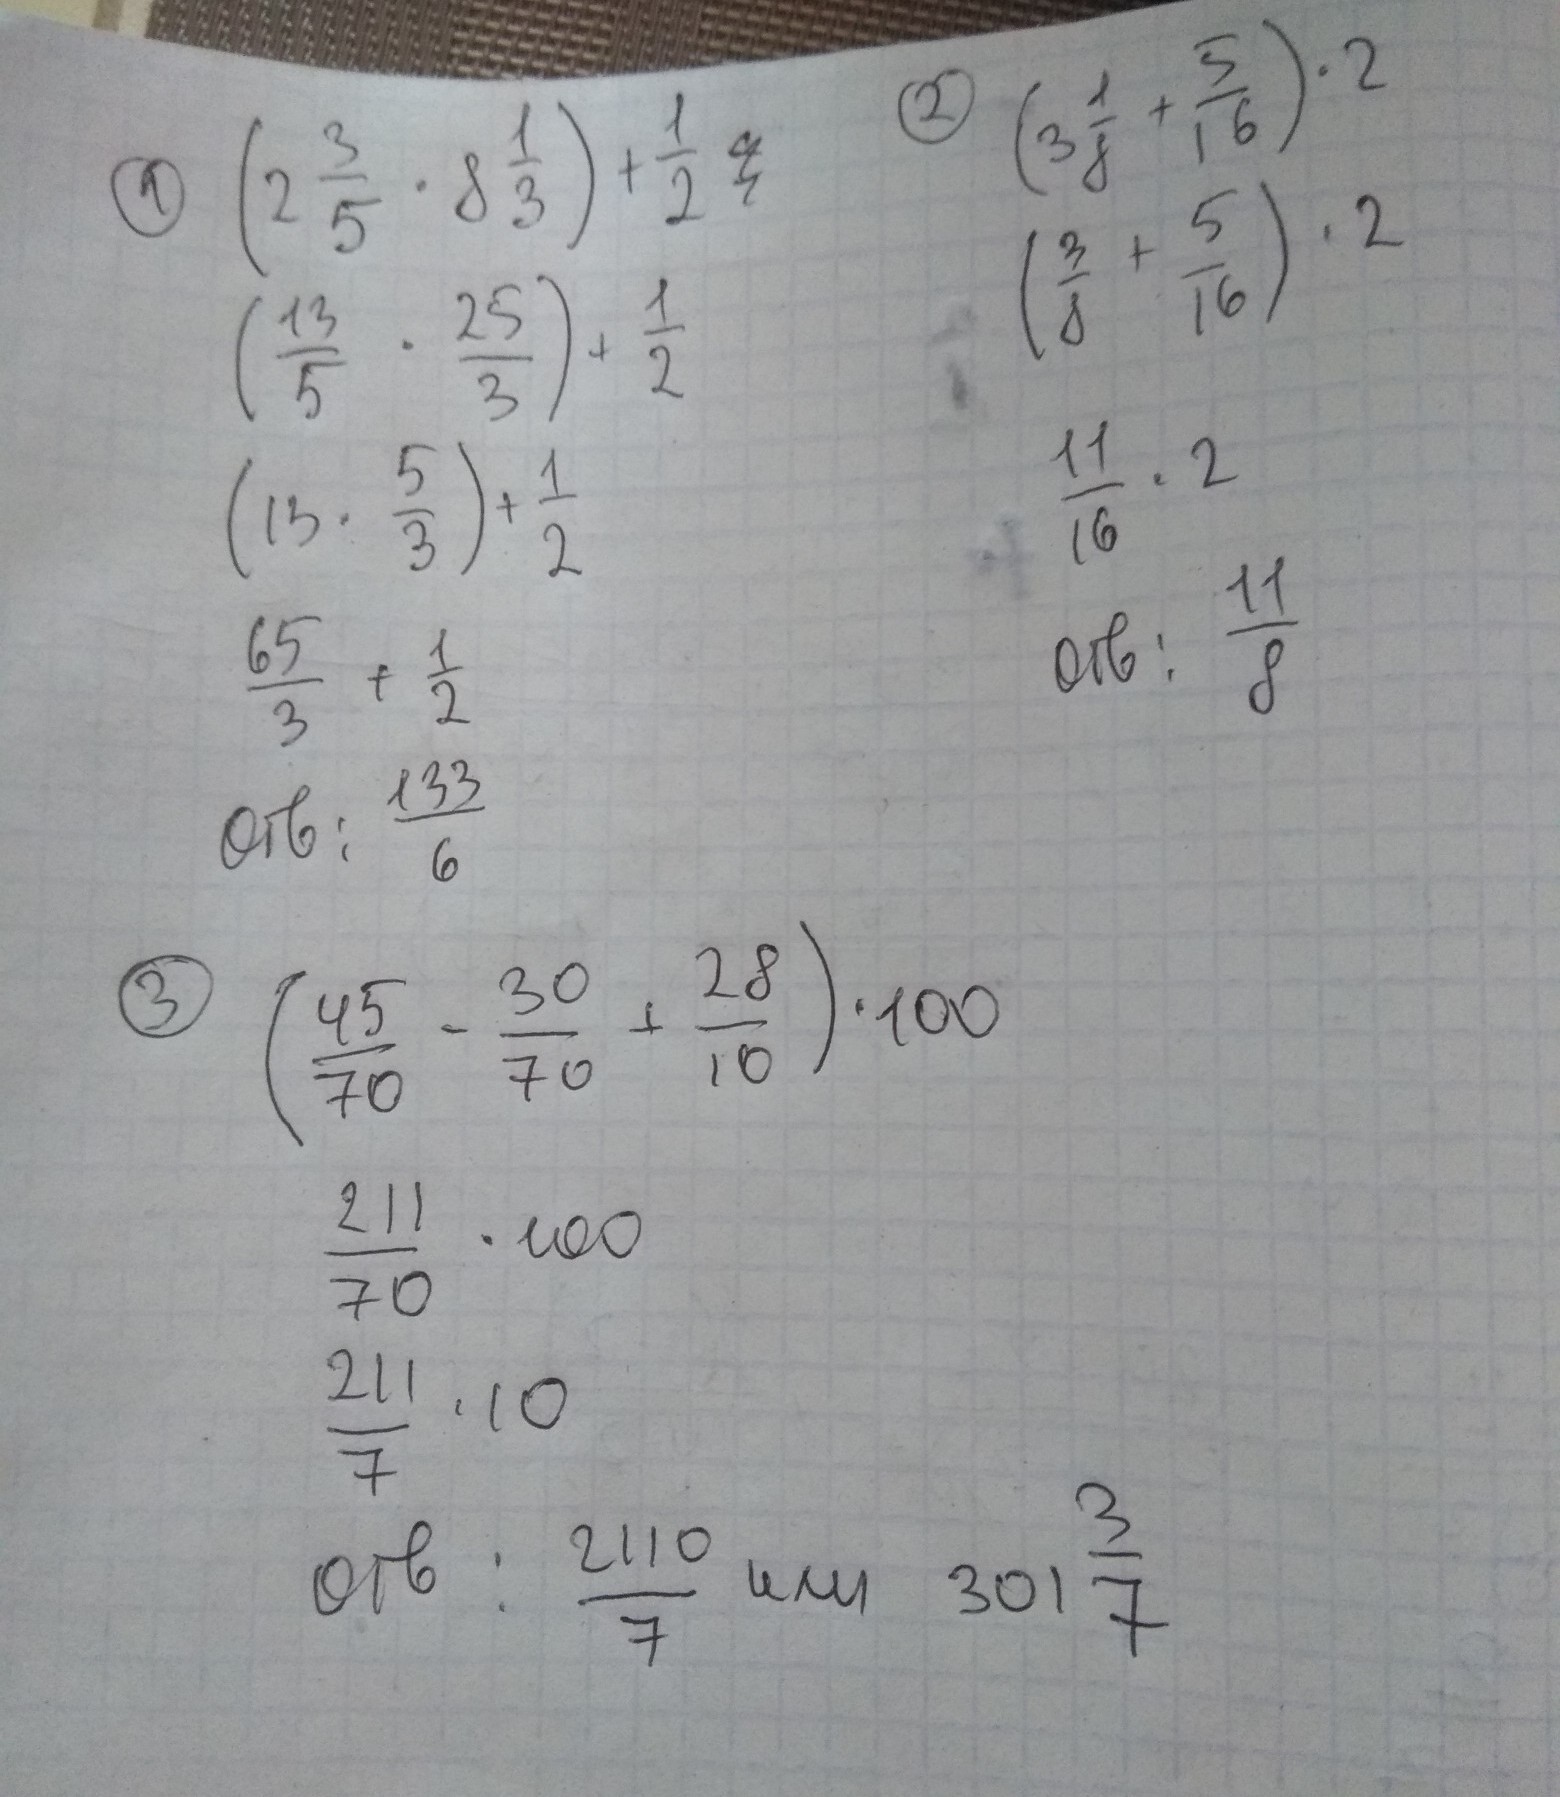 ① (2 3/5 · 8 1/3) + 1/2
(13/5 · 25/3) + 1/2
(13 · 5/3) + 1/2
65/3 + 1/2
Отв: 133/6
② (3 1/8 + 5/16) · 2
(3/8 + 5/16) · 2
11/16 · 2
Отв: 11/8
③ (45/70 - 30/70 + 28/10) · 100
211/70 · 100
211/7 · 10
Отв: 2110/7 или 301 3/7